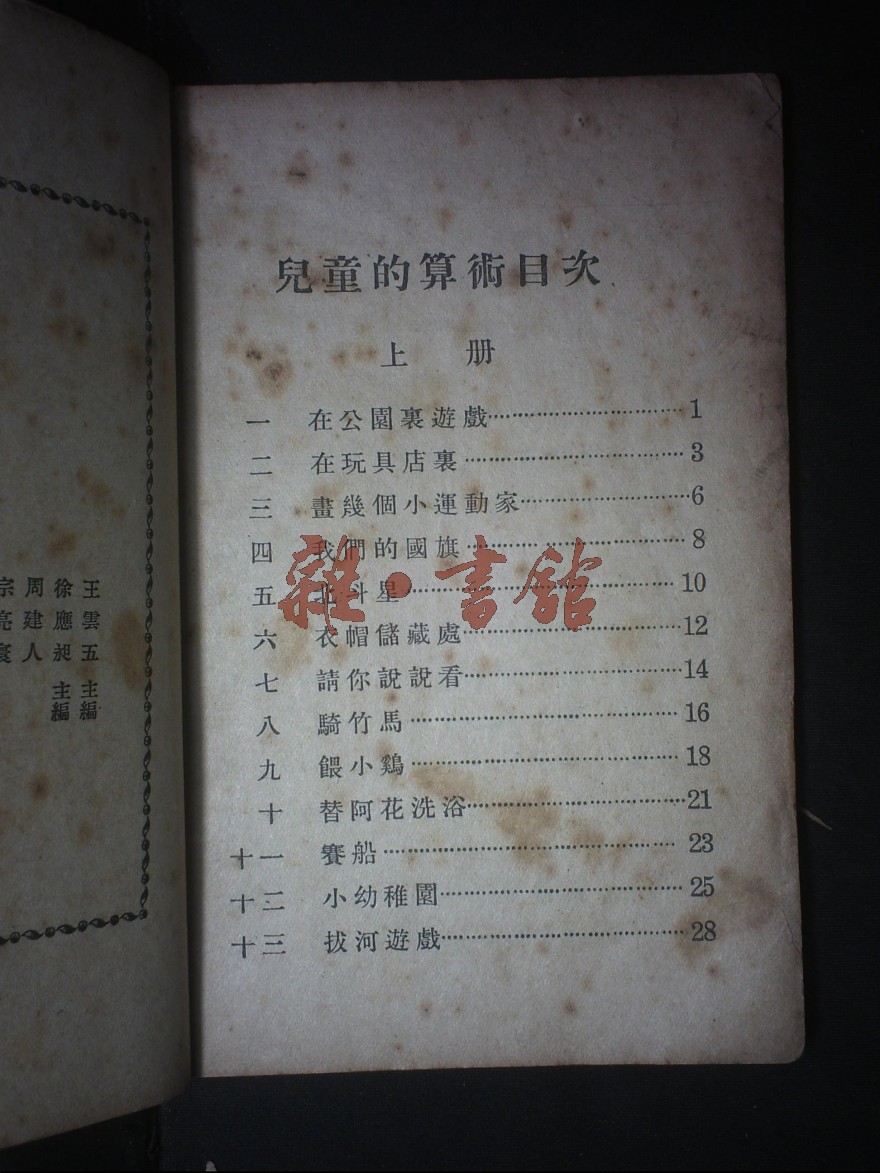 兒童的算術目次
上 册
一 在公園裏遊戲 1
二 在玩具店裏 3
三 畫幾個小運動家 6
四 我們的國旗 8
五 北斗星 10
六 衣帽儲藏處 12
七 請你說說看 14
八 騎竹馬 16
九 餵小鷄 18
十 替阿花洗浴 21
十一 賽船 23
十二 小幼稚園 25
十三 拔河遊戲 28
雜·書館
王雲五 主編
徐應昶 主編
周建人
宗亮寰